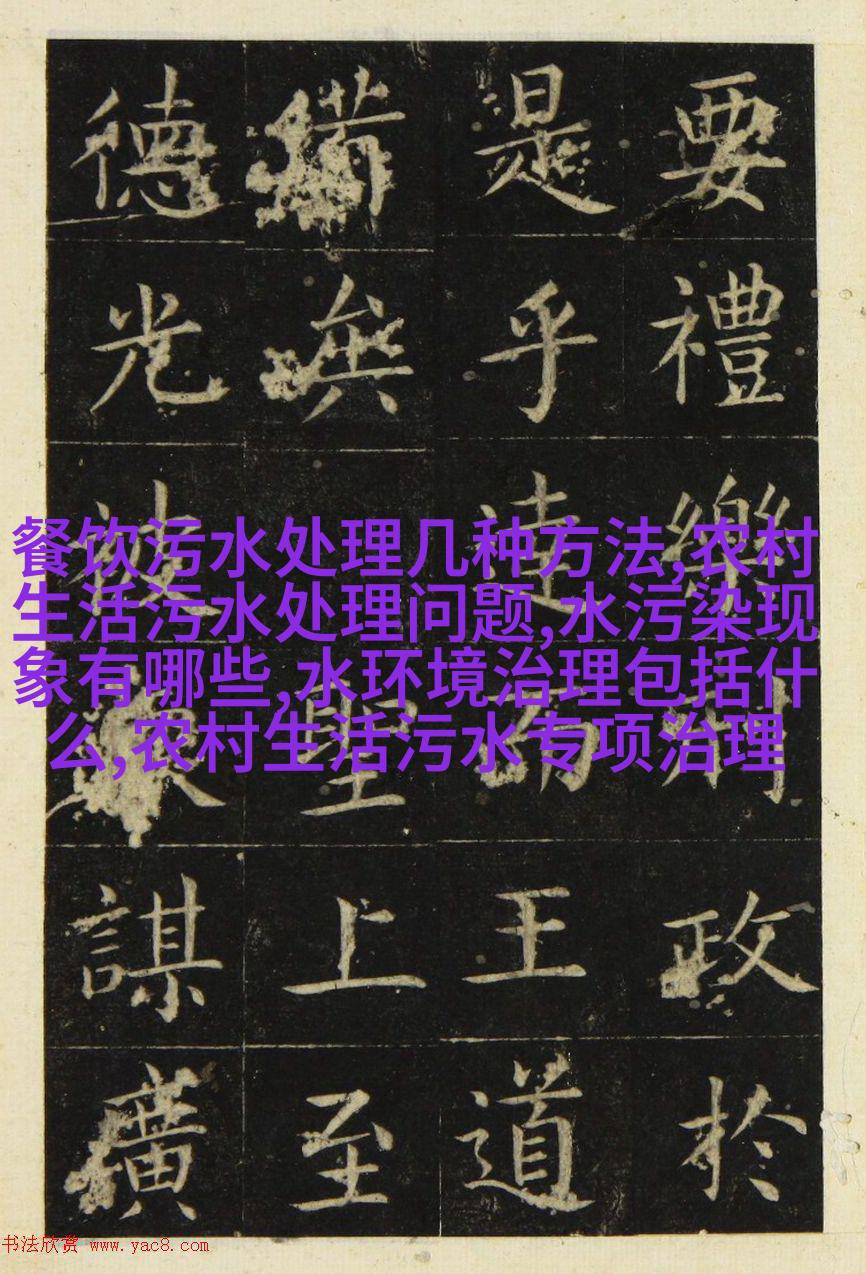 要禮樂刑政於
是乎達而王道
備聖上至
德光被謀廣
餐饮污水处理几种方法,农村
生活污水处理问题,水污染现
象有哪些,水环境治理包括什
么,农村生活污水专项治理
书法欣赏 www.yac8.com